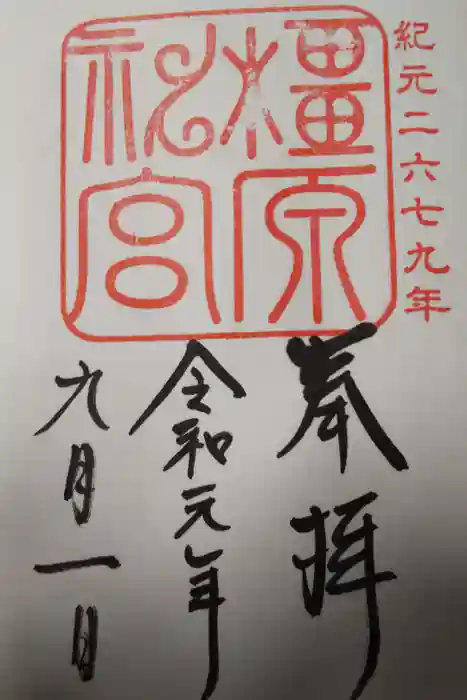 紀元二六七九年
橿原
神宮
奉拝
令和元年
九月一日